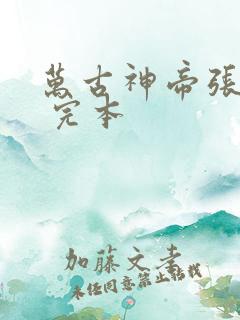 萬古神帝張
完本
加藤文孝
未经同意禁止转载